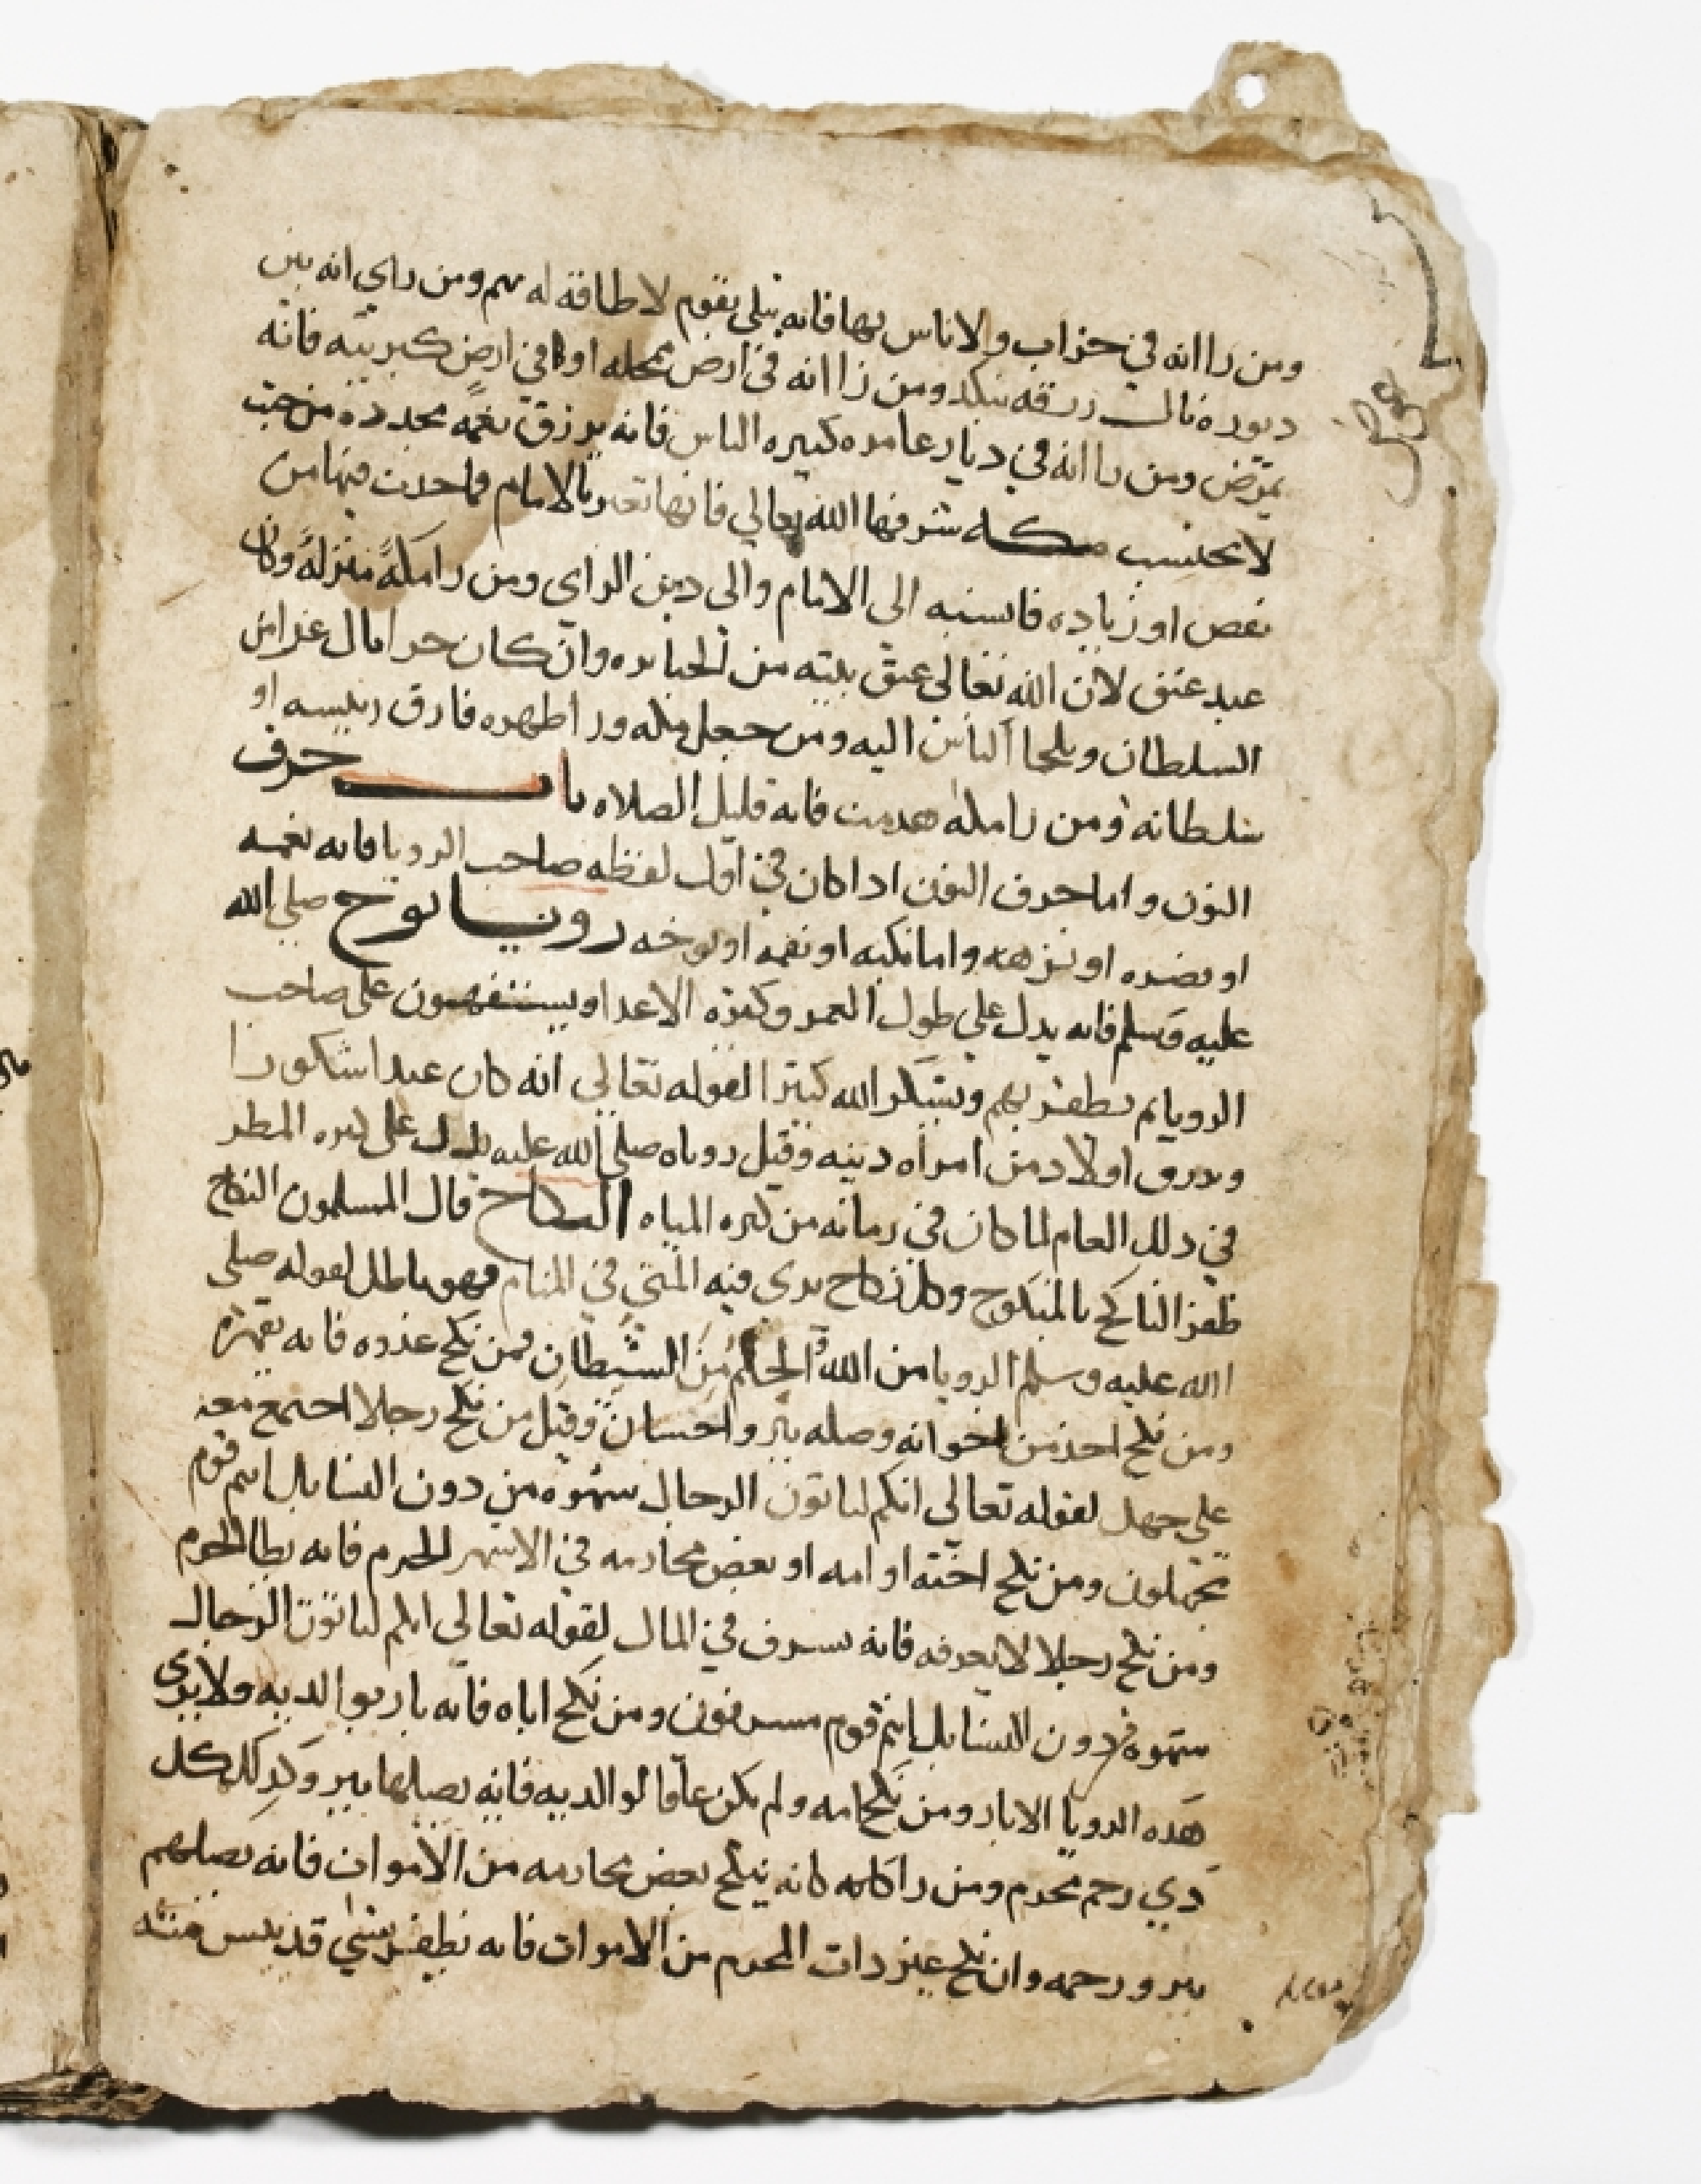 ومن راانه في خراب ولاناس بها فانه يبلى بقوم لا طاقة له بهم ومن راي انه بين
ديوره نالت رزقه بنكد ومن راانه في ارض محله او في ارض كبريتيه فانه
يمرض ومن راانه في ديار عامره كثيره الناس فانه يرزق نعمه مجدده من حيث
لا يحتسب مكه شرفها الله تعالي فانها تعبر بالامام فما حدث فيها من
نقص او زياده فانسبه الى الامام والى دين الراي ومن را مكة منزله وكان
عبد عتق لان الله تعالى عتق بيته من الجبابره وان كان حرا نال عزا من
السلطان ويلجا الناس اليه ومن جعل مكه ورا ظهره فارق رييسه او
سلطانه ومن را مكه هدمت فانه قليل الصلاه باب حرف
النون واما حرف النون اذا كان في اول لفظه صاحب الرويا فانه نعمه
او نضره او نزهه واما نكبه او نقمه او نوحه رويا نوح صلي الله
عليه وسلم فانه يدل علي طول العمر وكثره الاعدا ويستفهون على صاحب
الرويا ثم يظفر بهم ويشكر الله كثيرا لقوله تعالي انه كان عبدا شكورا
ويرزق اولاد من امراه دينيه وقيل روياه صلي الله عليه يدل على كثره المطر
في ذلك العام لما كان في زمانه من كثره المياه النكاح قال المسلمون النكاح
ظفر الناكح بالمنكوح وكل نكاح يرى فيه المني في المنام فهو باطل لقوله صلى
الله عليه وسلم الرويا من الله والحلم من الشيطان فمن نكح عدوه فانه يقهره
ومن نكح احد من اخوانه وصله ببر واحسان وقيل من نكح رجلا اجتمع معه
على جهل لقوله تعالى انكم لتاتون الرجال شهوه من دون النسا بل انتم قوم
تجهلون ومن نكح اخته او امه او بعض محارمه في الاشهر الحرم فانه يطا الحرم
ومن نكح رجلا لا يعرفه فانه يسرف في المال لقوله تعالي انكم لتاتون الرجال
شهوه من دون النسا بل انتم قوم مسرفون ومن نكح اباه فانه بار بوالديه ولا يرى
هذه الرويا الا بار ومن نكح امه ولم يكن عاقا لوالديه فانه يصلها ببر وكذلك كل
ذي رحم محرم ومن را كانه ينكح بعض محارمه من الاموات فانه يصلهم
ببر ورحمه وان نكح غير ذات المحرم من الاموات فانه يظفر بشي قد ييس منه